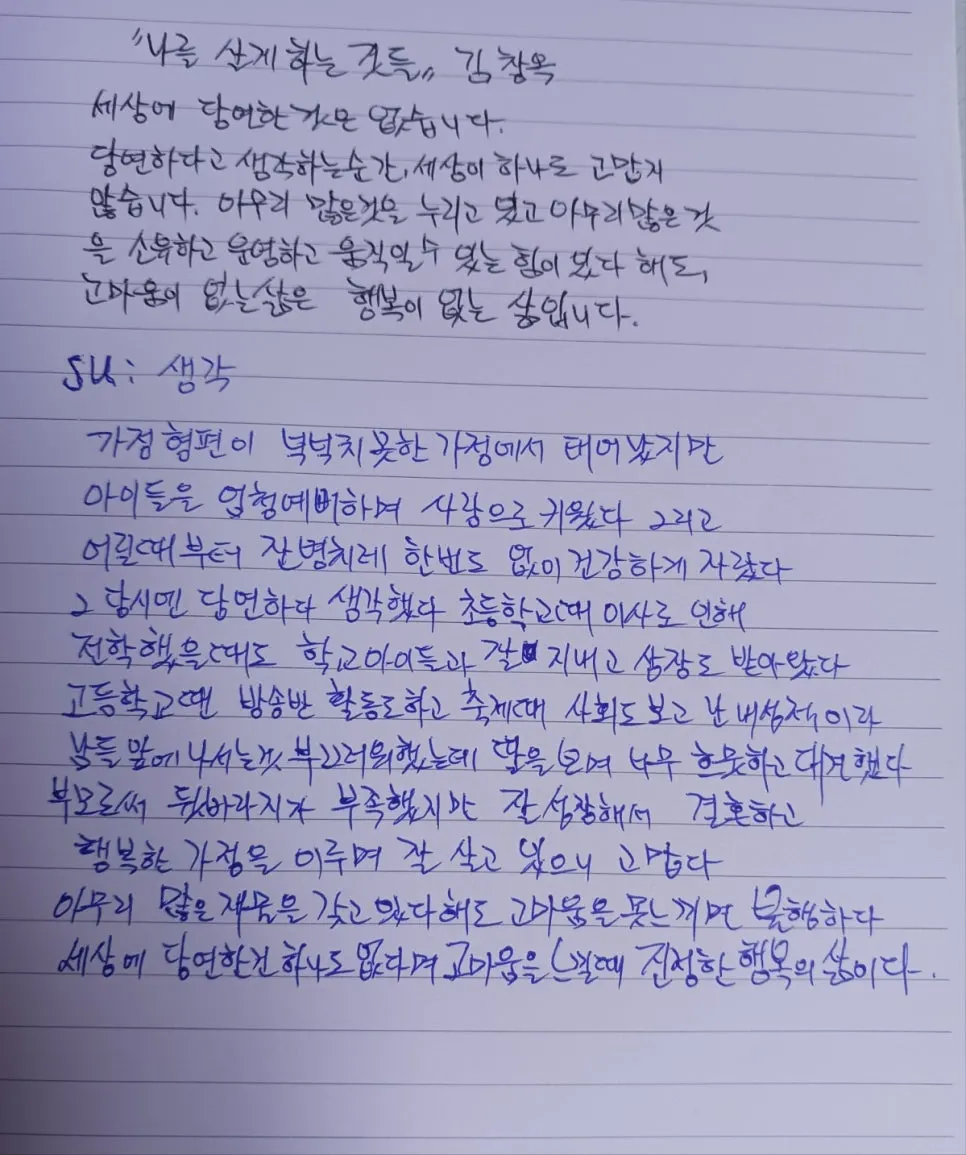 "나를 살게 하는 것들" 김창옥
세상에 당연한 것은 없습니다.
당연하다고 생각하는순간, 세상이 하나도 고맙지
않습니다. 아무리 많은것을 누리고 있고 아무리많은 것
을 소유하고 운영하고 움직일수 있는 힘이 있다 해도,
고마움이 없는삶은 행복이 없는 삶입니다.
SU: 생각
가정형편이 넉넉치못한 가정에서 태어났지만
아이들을 엄청예뻐하며 사랑으로 키웠다 그리고
어릴때부터 잔병치레 한번도 없이 건강하게 자랐다
그 당시엔 당연하다 생각했다 초등학교때 이사로 인해
전학했을때도 학교아이들과 잘 지내고 상장도 받아왔다
고등학교땐 방송반 활동도하고 축제때 사회도 보고 난 내성적이라
남들 앞에 나서는것 부끄러워했는데 딸을 보며 너무 흐뭇하고 대견했다
부모로써 뒷바라지가 부족했지만 잘 성장해서 결혼하고
행복한 가정을 이루며 잘 살고 있으니 고맙다
아무리 많은 재물을 갖고 있다해도 고마움을 못느끼면 불행하다
세상에 당연한건 하나도 없다며 고마움을 느낄때 진정한 행복의 삶이다.